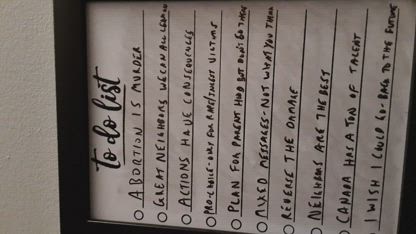 to do list
ABORTION IS MURDER
GREAT NEIGHBORS WE CAN ALL
ACTIONS HAVE CONSEQUENCES
PRO-CHOICE-ONLY FOR RAPE/INCEST VICTIMS
PLAN FOR PARENT HOOD BUT DON'T GO THERE
MIXED MESSAGES-NOT WHAT YOU THINK
REVERSE THE DAMAGE
NEIGHBORS ARE THE BEST
CANADA HAS A TON OF TALENT
I WISH I COULD GO-BACK TO THE FUTURE